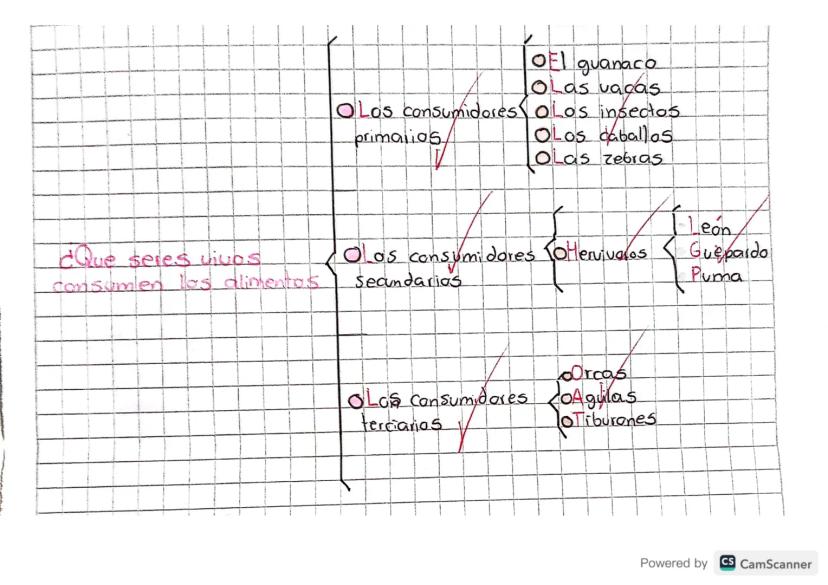 El guanaco
Las vacas
Los consumidores
Los insectos
primarios
Los caballos
Las zebras
¿Que seres vivos
consumien los alimentos
Los consumidores
secundarios
Hervivoros
León
Guepardo
Puma
Los consumidores
terciarios
Orcas
Aguilas
Tiburones
Powered by CS CamScanner